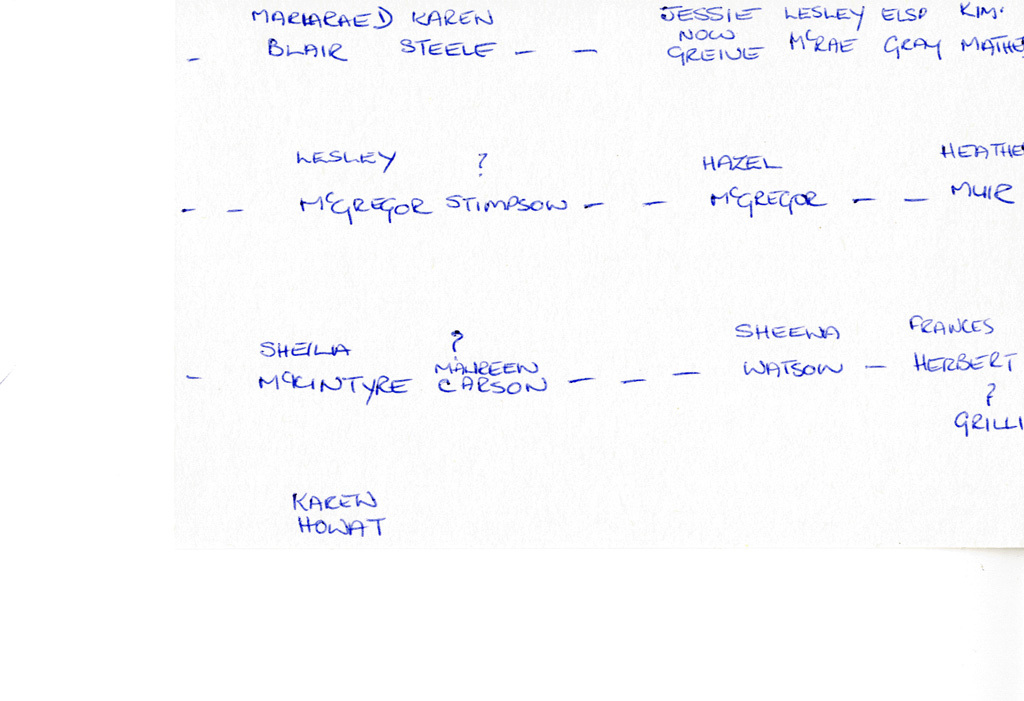 KAREN JESSIE LESLEY ELSP KIM.
NOW
- BLAIR STEELE - - GREIVE McRAE GRAY MATHE
LESLEY ? HAZEL HEATHE
- - McGREGOR STIMPSON - - McGREGOR - - MUIR
SHEILA ? SHEENA FRANCES
MAUREEN
- McKINTYRE CARSON - - - WATSON - HERBERT
?
GRILLI
KAREN
HOWAT